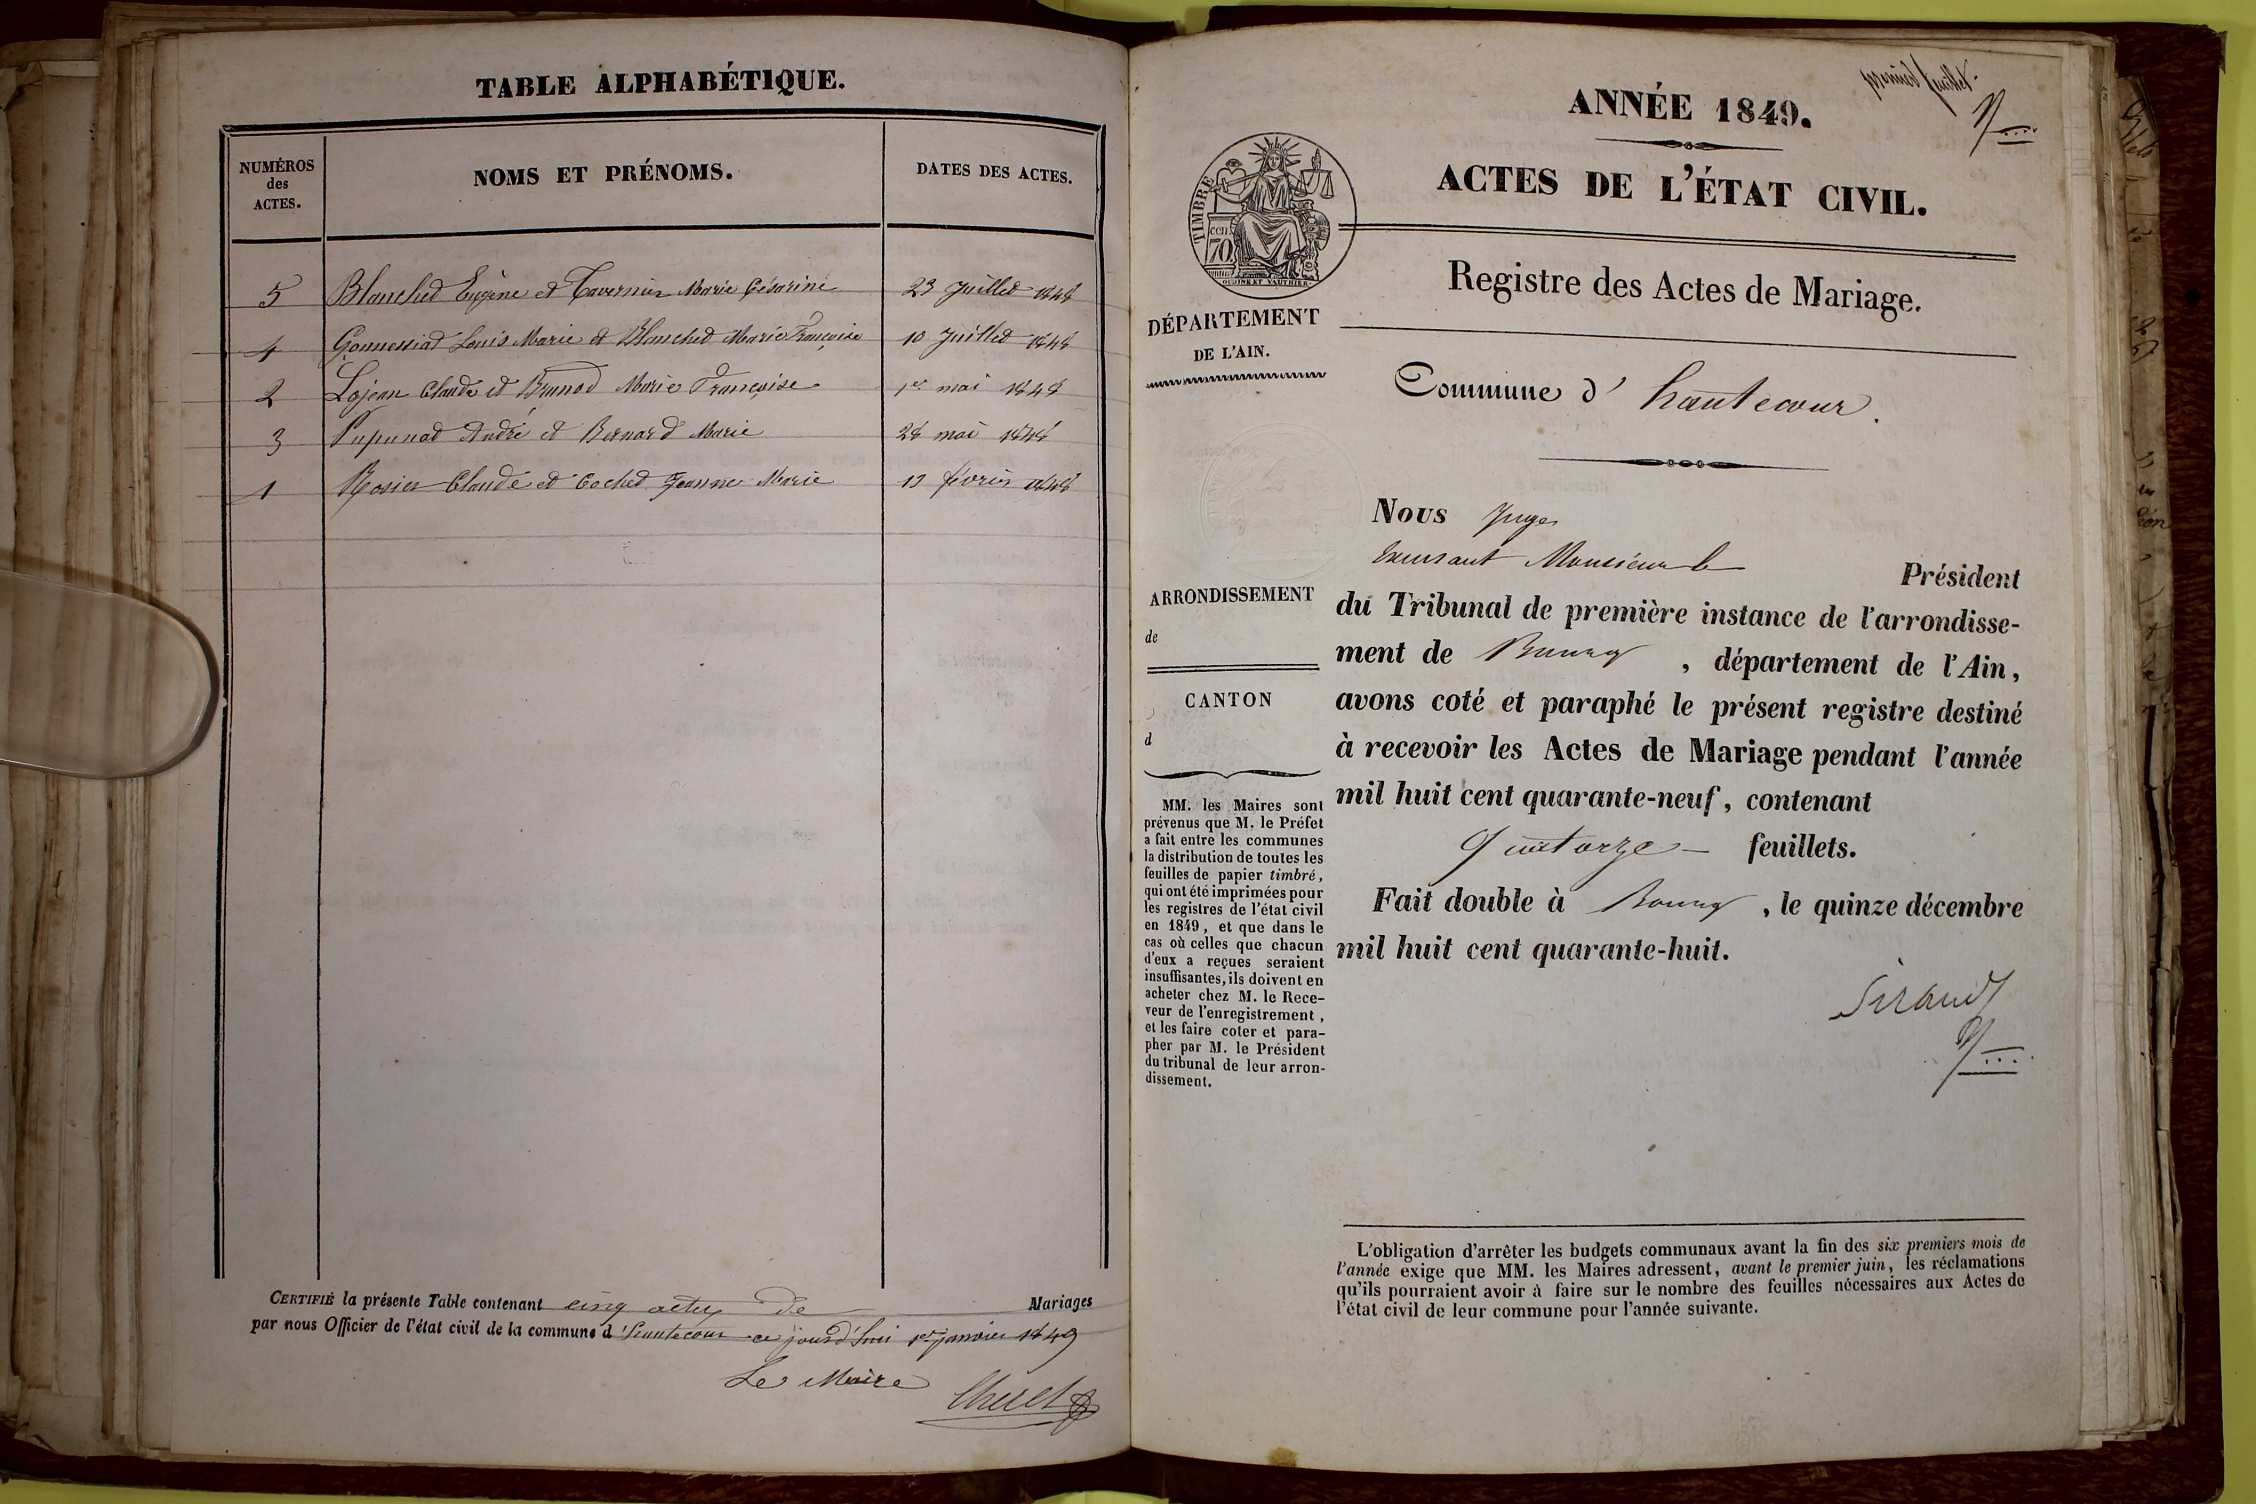 TABLE ALPHABÉTIQUE.
NUMÉROS
des
ACTES.
NOMS ET PRÉNOMS.
DATES DES ACTES.
5 Blanchet Eugène et Tavernier Marie Césarine 23 Juillet 1848
4 Gonnessiat Louis Marie et Blanchet Marie Françoise 10 Juillet 1848
2 Lojean Claude et Brunod Marie Françoise 1er mai 1848
3 Pupunat André et Bernard Marie 28 mai 1848
1 Rosier Claude et Cochet Jeanne Marie 13 février 1848
CERTIFIÉ la présente Table contenant cinq actes de Mariages
par nous Officier de l'état civil de la commune d'hautecour ce jourd'hui 1er janvier 1849
Le Maire
premier feuillet.
ANNÉE 1849.
ACTES DE L'ÉTAT CIVIL.
TIMBRE
70
cen
OUDINE ET VAUTHIER
Registre des Actes de Mariage.
DÉPARTEMENT
DE L'AIN.
Commune d' hautecour.
Nous Juge
Exerçant Monsieur le Président
du Tribunal de première instance de l'arrondisse-
ment de Bourg, département de l'Ain,
avons coté et paraphé le présent registre destiné
à recevoir les Actes de Mariage pendant l'année
mil huit cent quarante-neuf, contenant
Quatorze feuillets.
Fait double à Bourg, le quinze décembre
mil huit cent quarante-huit.
Siraud
ARRONDISSEMENT
de
CANTON
d
MM. les Maires sont
prévenus que M. le Préfet
a fait entre les communes
la distribution de toutes les
feuilles de papier timbré,
qui ont été imprimées pour
les registres de l'état civil
en 1849, et que dans le
cas où celles que chacun
d'eux a reçues seraient
insuffisantes, ils doivent en
acheter chez M. le Rece-
veur de l'enregistrement,
et les faire coter et para-
pher par M. le Président
du tribunal de leur arron-
dissement.
L'obligation d'arrêter les budgets communaux avant la fin des six premiers mois de
l'année exige que MM. les Maires adressent, avant le premier juin, les réclamations
qu'ils pourraient avoir à faire sur le nombre des feuilles nécessaires aux Actes de
l'état civil de leur commune pour l'année suivante.